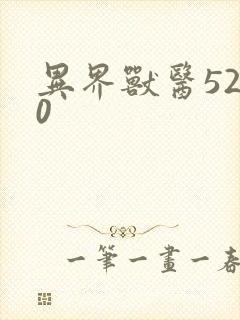 異界獸醫52
0
一筆一畫一春